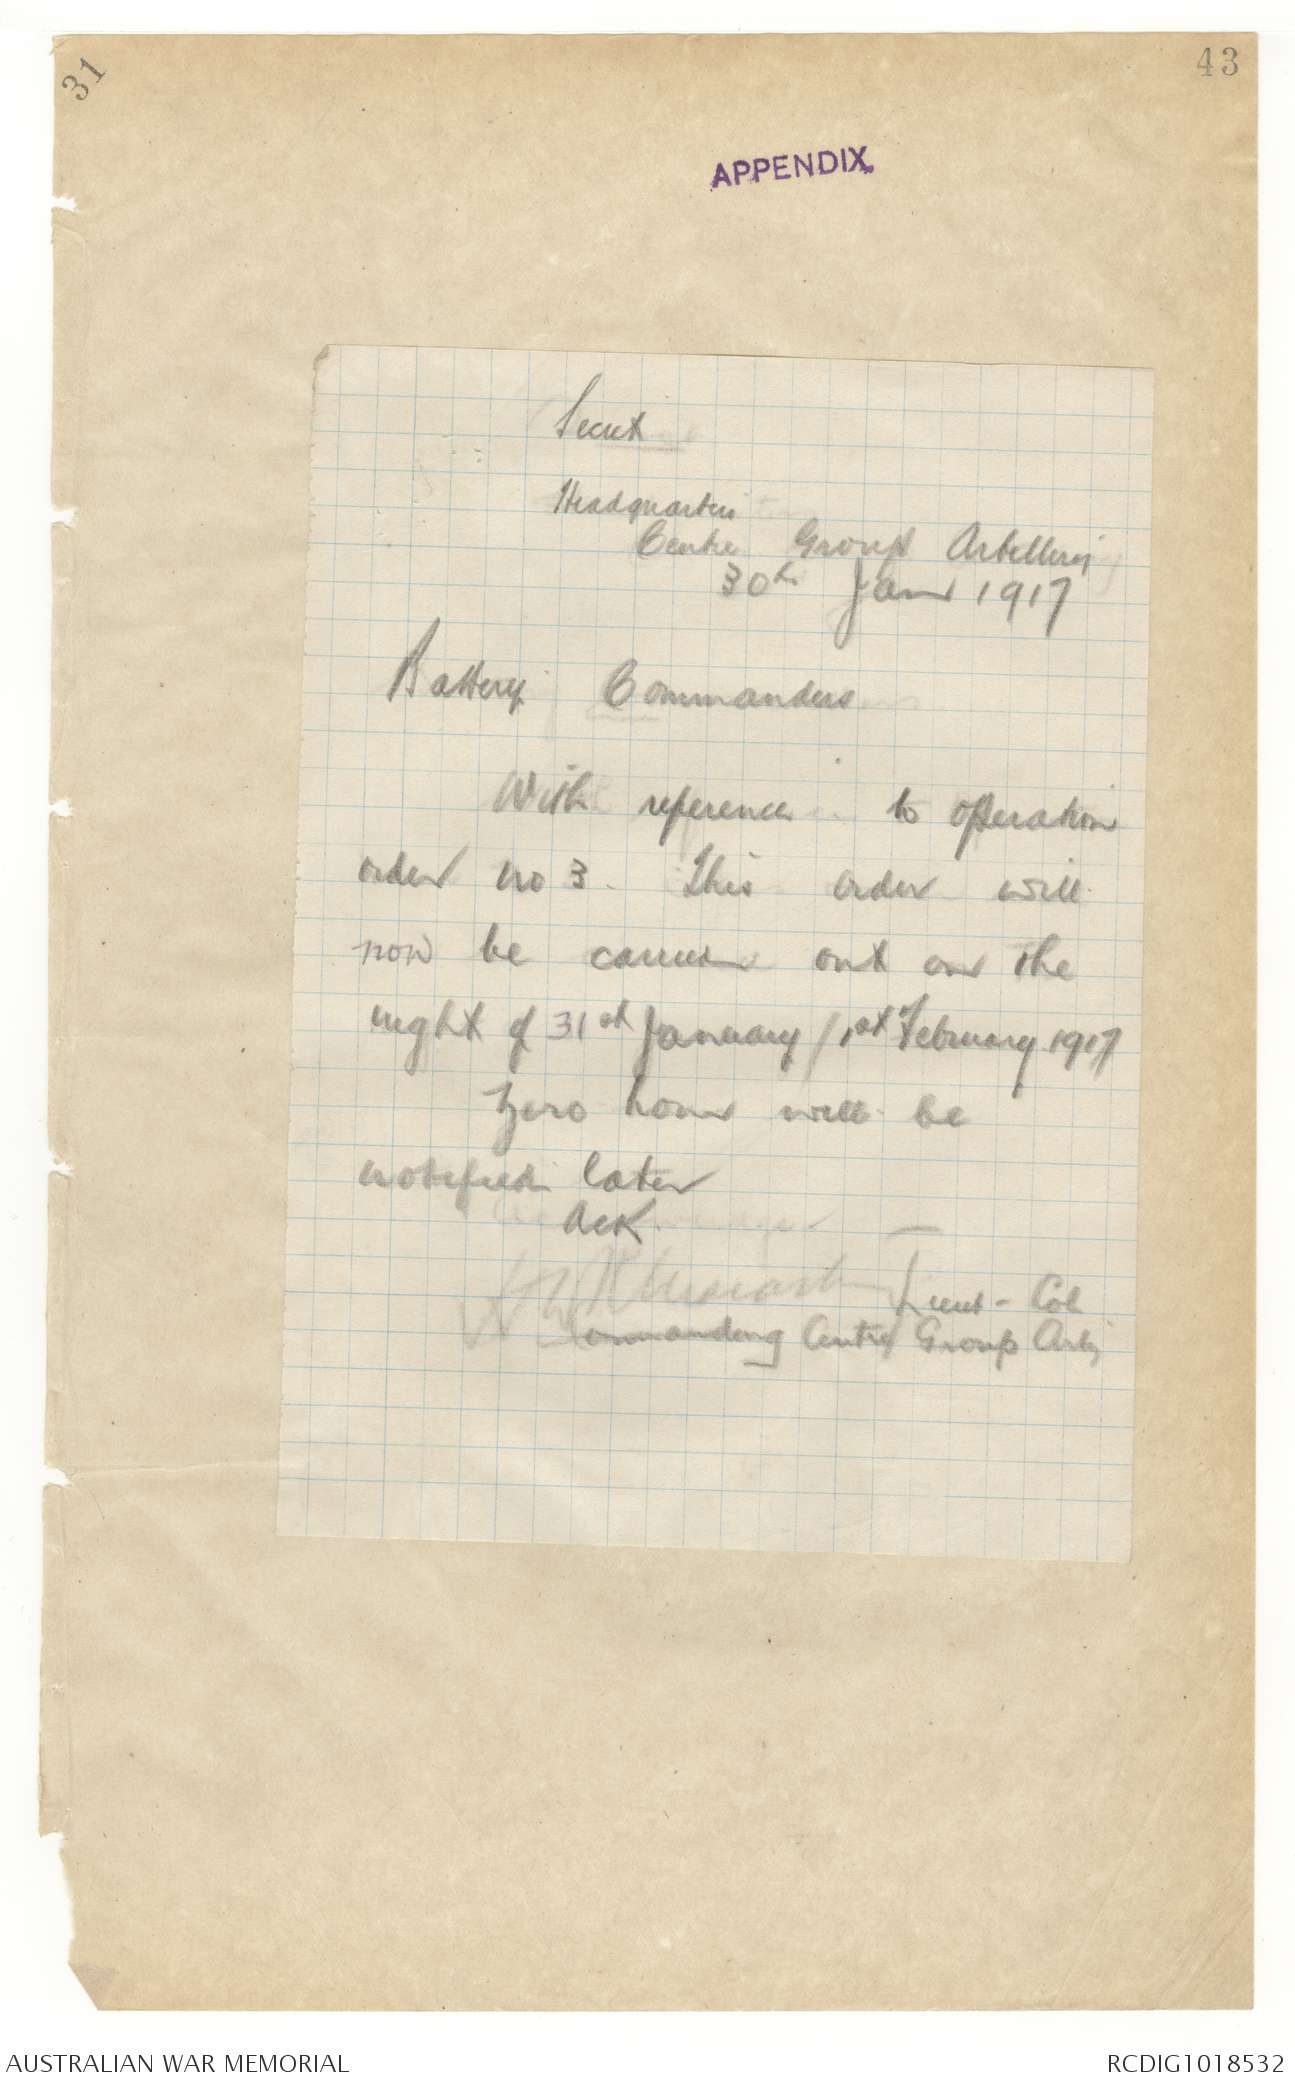 31
43
APPENDIX
Secret
Headquarters
Centre Group Artillery
30th Jan 1917
Battery Commanders
With reference to operation
order no 3. This order will
now be carried out on the
night of 31st January / 1st February 1917
Zero hour will be
notified later
Ack.
Lieut - Col
Commanding Centre Group Arty
AUSTRALIAN WAR MEMORIAL
RCDIG1018532